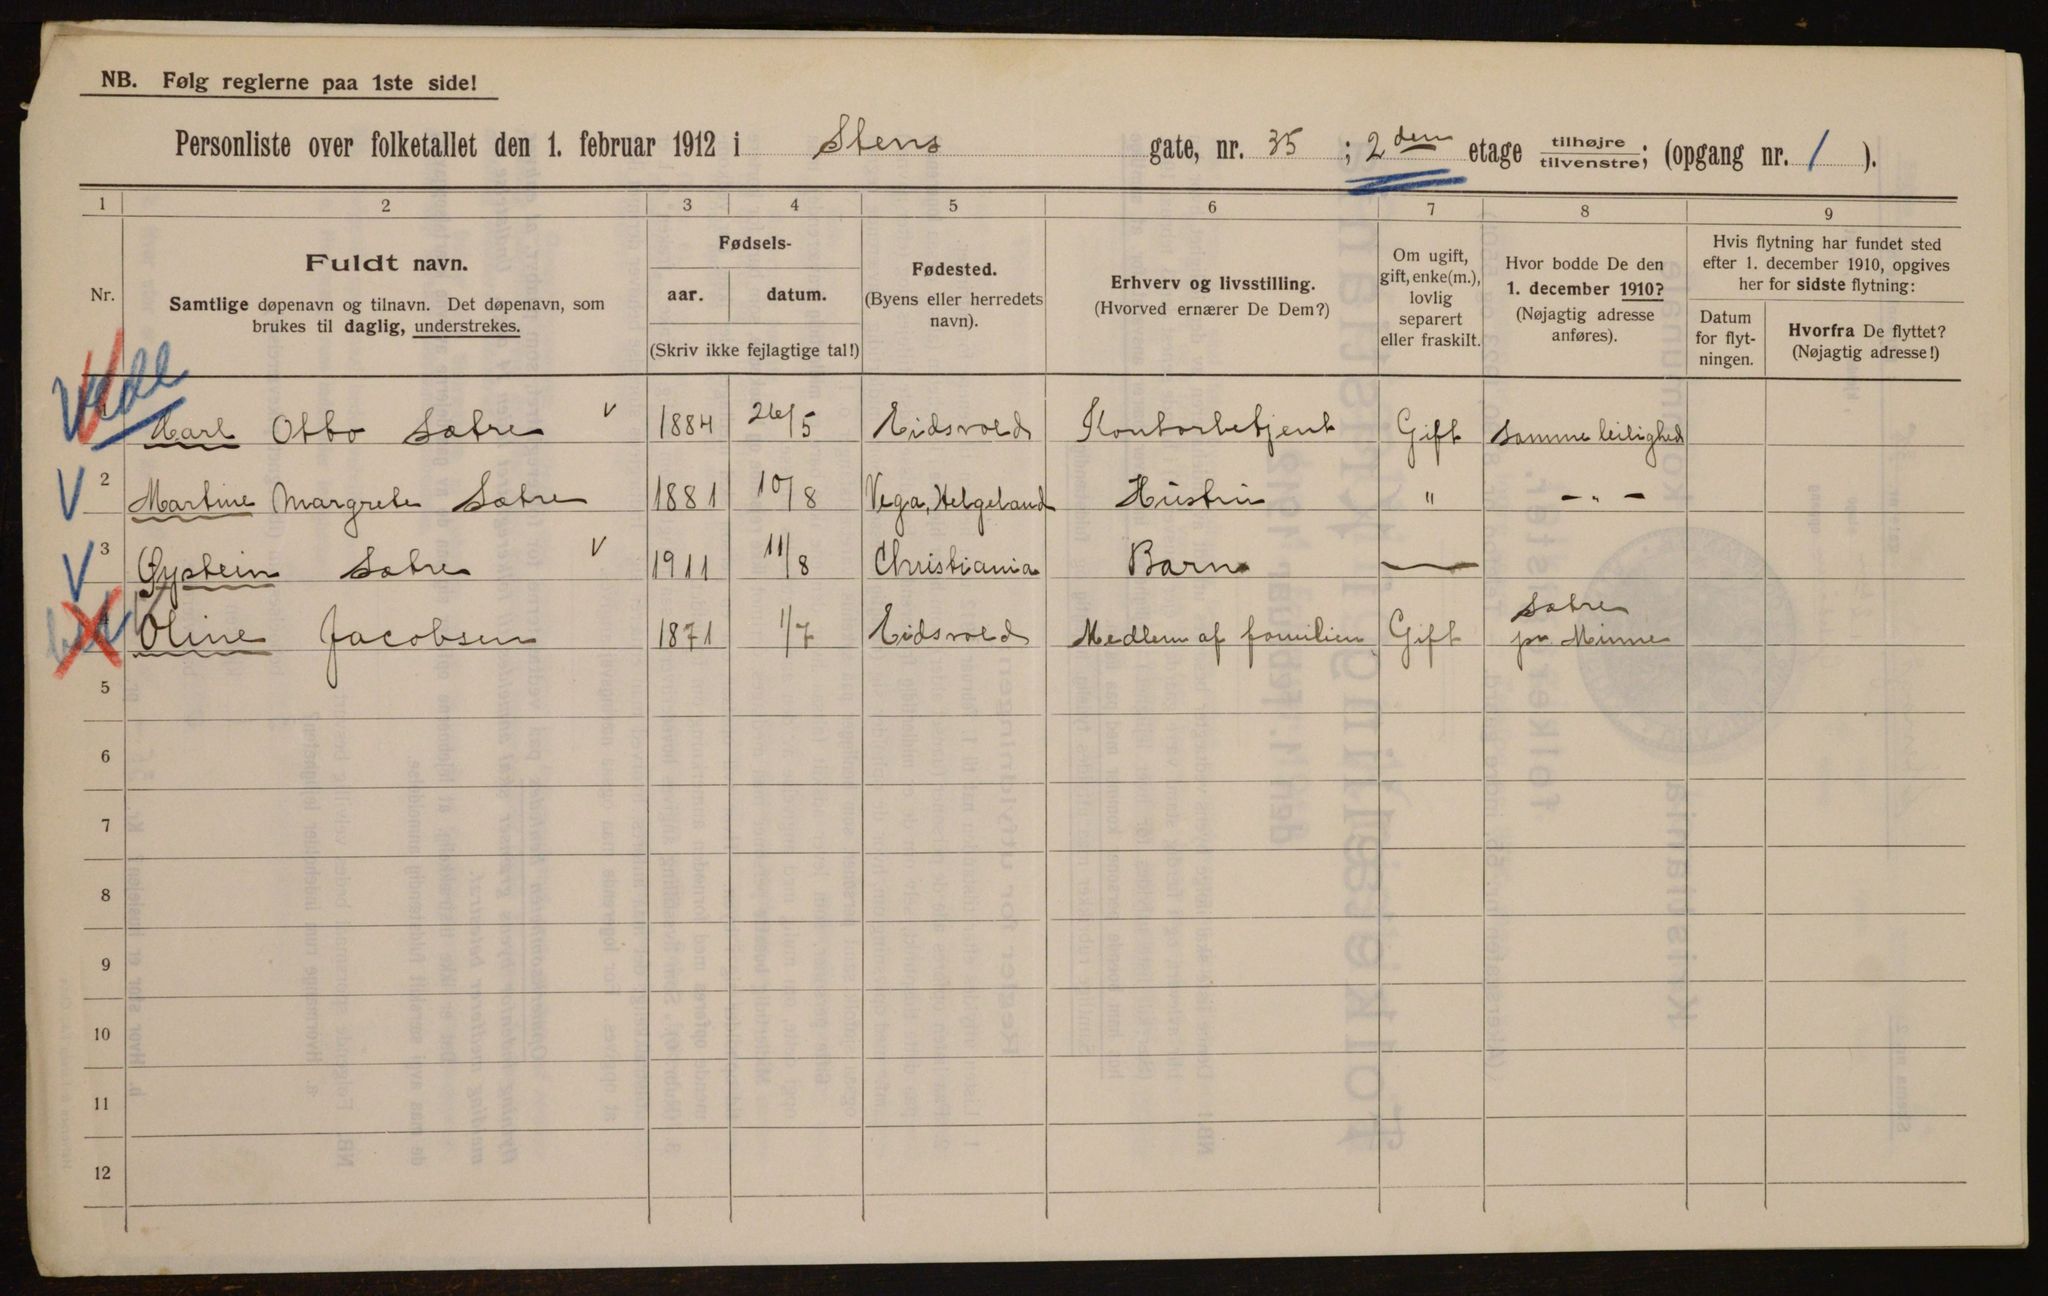 NB. Følg reglerne paa 1ste side!
Personliste over folketallet den 1. februar 1912 i Stens gate, nr. 35 ; 2 den etage tilhøjre/tilvenstre; (opgang nr. 1 ).
1 2 3 4 5 6 7 8 9
Nr.
Fuldt navn.
Samtlige døpenavn og tilnavn. Det døpenavn, som
brukes til daglig, understrekes.
Fødsels-
aar. datum.
(Skriv ikke fejlagtige tal!)
Fødested.
(Byens eller herredets
navn).
Erhverv og livsstilling.
(Hvorved ernærer De Dem?)
Om ugift,
gift, enke(m.),
lovlig
separert
eller fraskilt.
Hvor bodde De den
1. december 1910?
(Nøjagtig adresse
anføres).
Hvis flytning har fundet sted
efter 1. december 1910, opgives
her for sidste flytning:
Datum
for flyt-
ningen.
Hvorfra De flyttet?
(Nøjagtig adresse!)
1 Karl Otto Sætre 1884 26/5 Eidsvold Kontorbetjent Gift Samme leilighed
2 Martine Margrete Sætre 1881 10/8 Vega, Helgeland Hustru " - " -
3 Øystein Sætre 1911 11/8 Christiania Barn —
4 Oline Jacobsen 1871 1/7 Eidsvold Medlem af familien Gift Sætre
pr Minne
5
6
7
8
9
10
11
12